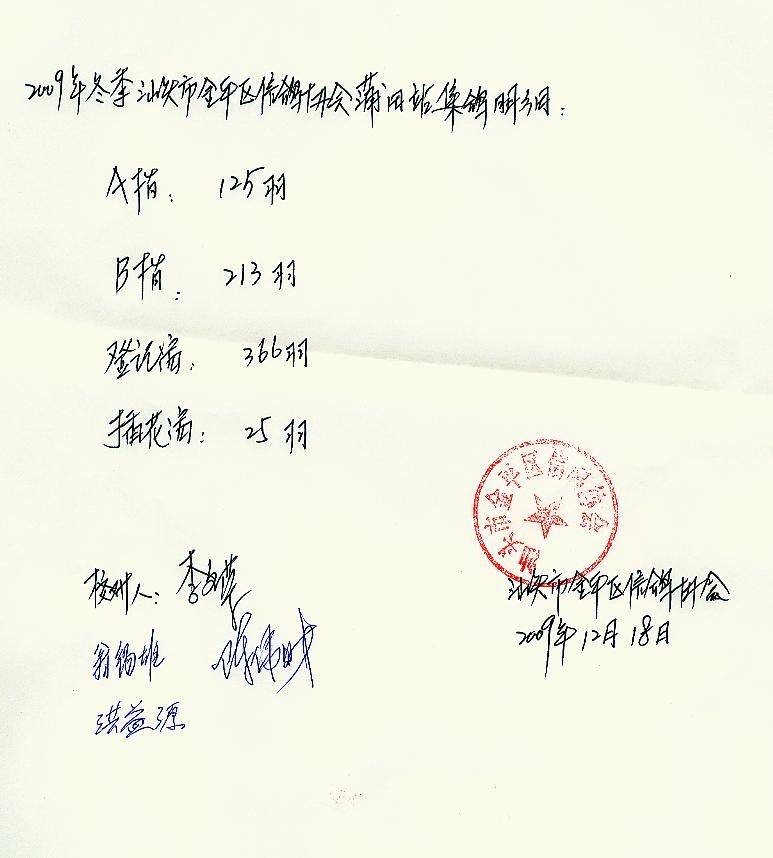 2009年冬季汕头市金平区信鸽协会莆田站集鸽明细:
A指: 125羽
B指: 213羽
登记鸽: 366羽
插花鸽: 25羽
汕头市金平区信鸽协会
校对人: 李
翁锡雄
洪益源
汕头市金平区信鸽协会
2009年12月18日